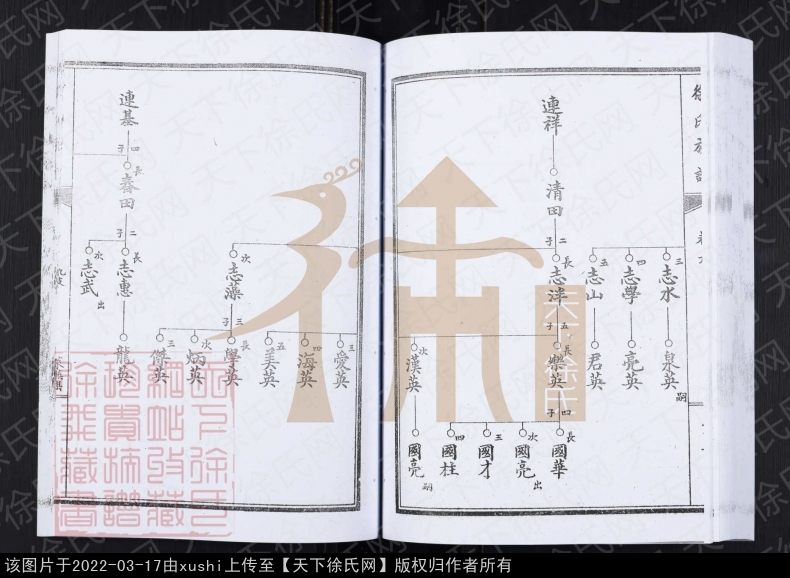 徐氏
三
志水
泉英
嗣
四
志學
亮英
五
志山
君英
連祥
清田
二子
長
志洋
五子
長
榮英
四子
長
國華
次
國亮
出
五
國才
四
國柱
次
漢英
國亮
嗣
次
志藻
三子
長
學英
次
炳英
三
傑英
三
愛英
四
海英
五
美英
連基
四子
長
春田
二子
長
志惠
龍英
次
志武
出
天下徐氏
天下徐氏网
该图片于2022-03-17由xushi上传至【天下徐氏网】版权归作者所有